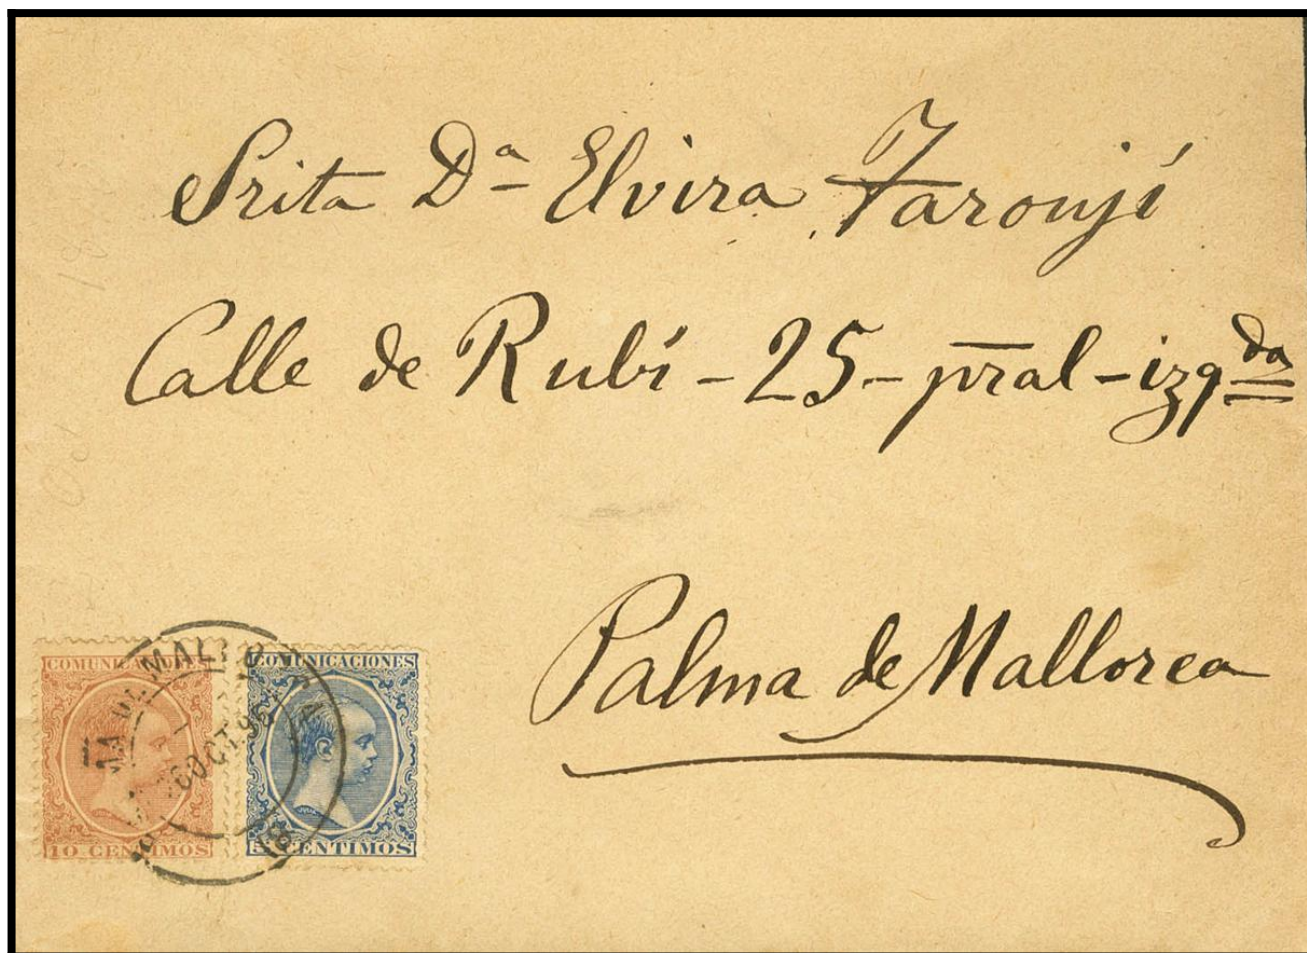 Srita Dª Elvira Taronjí
Calle de Rubí - 25 - pral - izqda
Palma de Mallorca
COMUNICACIONES
10 CENTIMOS
COMUNICACIONES
5 CENTIMOS
OCT 95